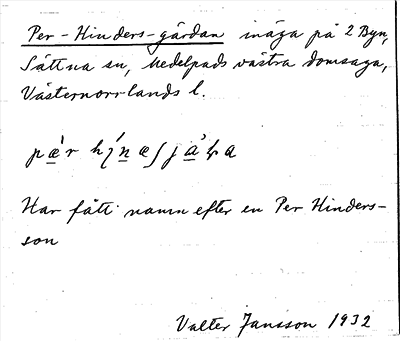 Per-Hinders-gårdan inäga på 2 Byn,
Sättna sn, Medelpads västra domsaga,
Västernorrlands l.
pær
Har fått namn efter en Per Hinders-
son
Valter Jansson 1932